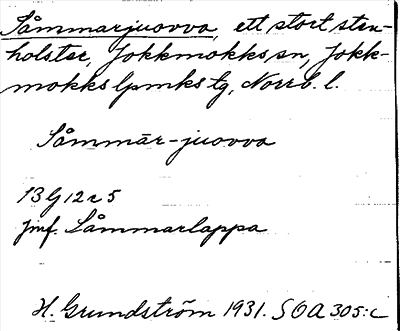 Såmmarjuovva, ett stort sten-
holster, Jokkmokks sn, Jokk-
mokks lpmks tg, Norrb. l.
Såmmār-juovva
13 G 12 r 5
jmf. Såmmarlappa
H. Grundström 1931. SOA 305:c